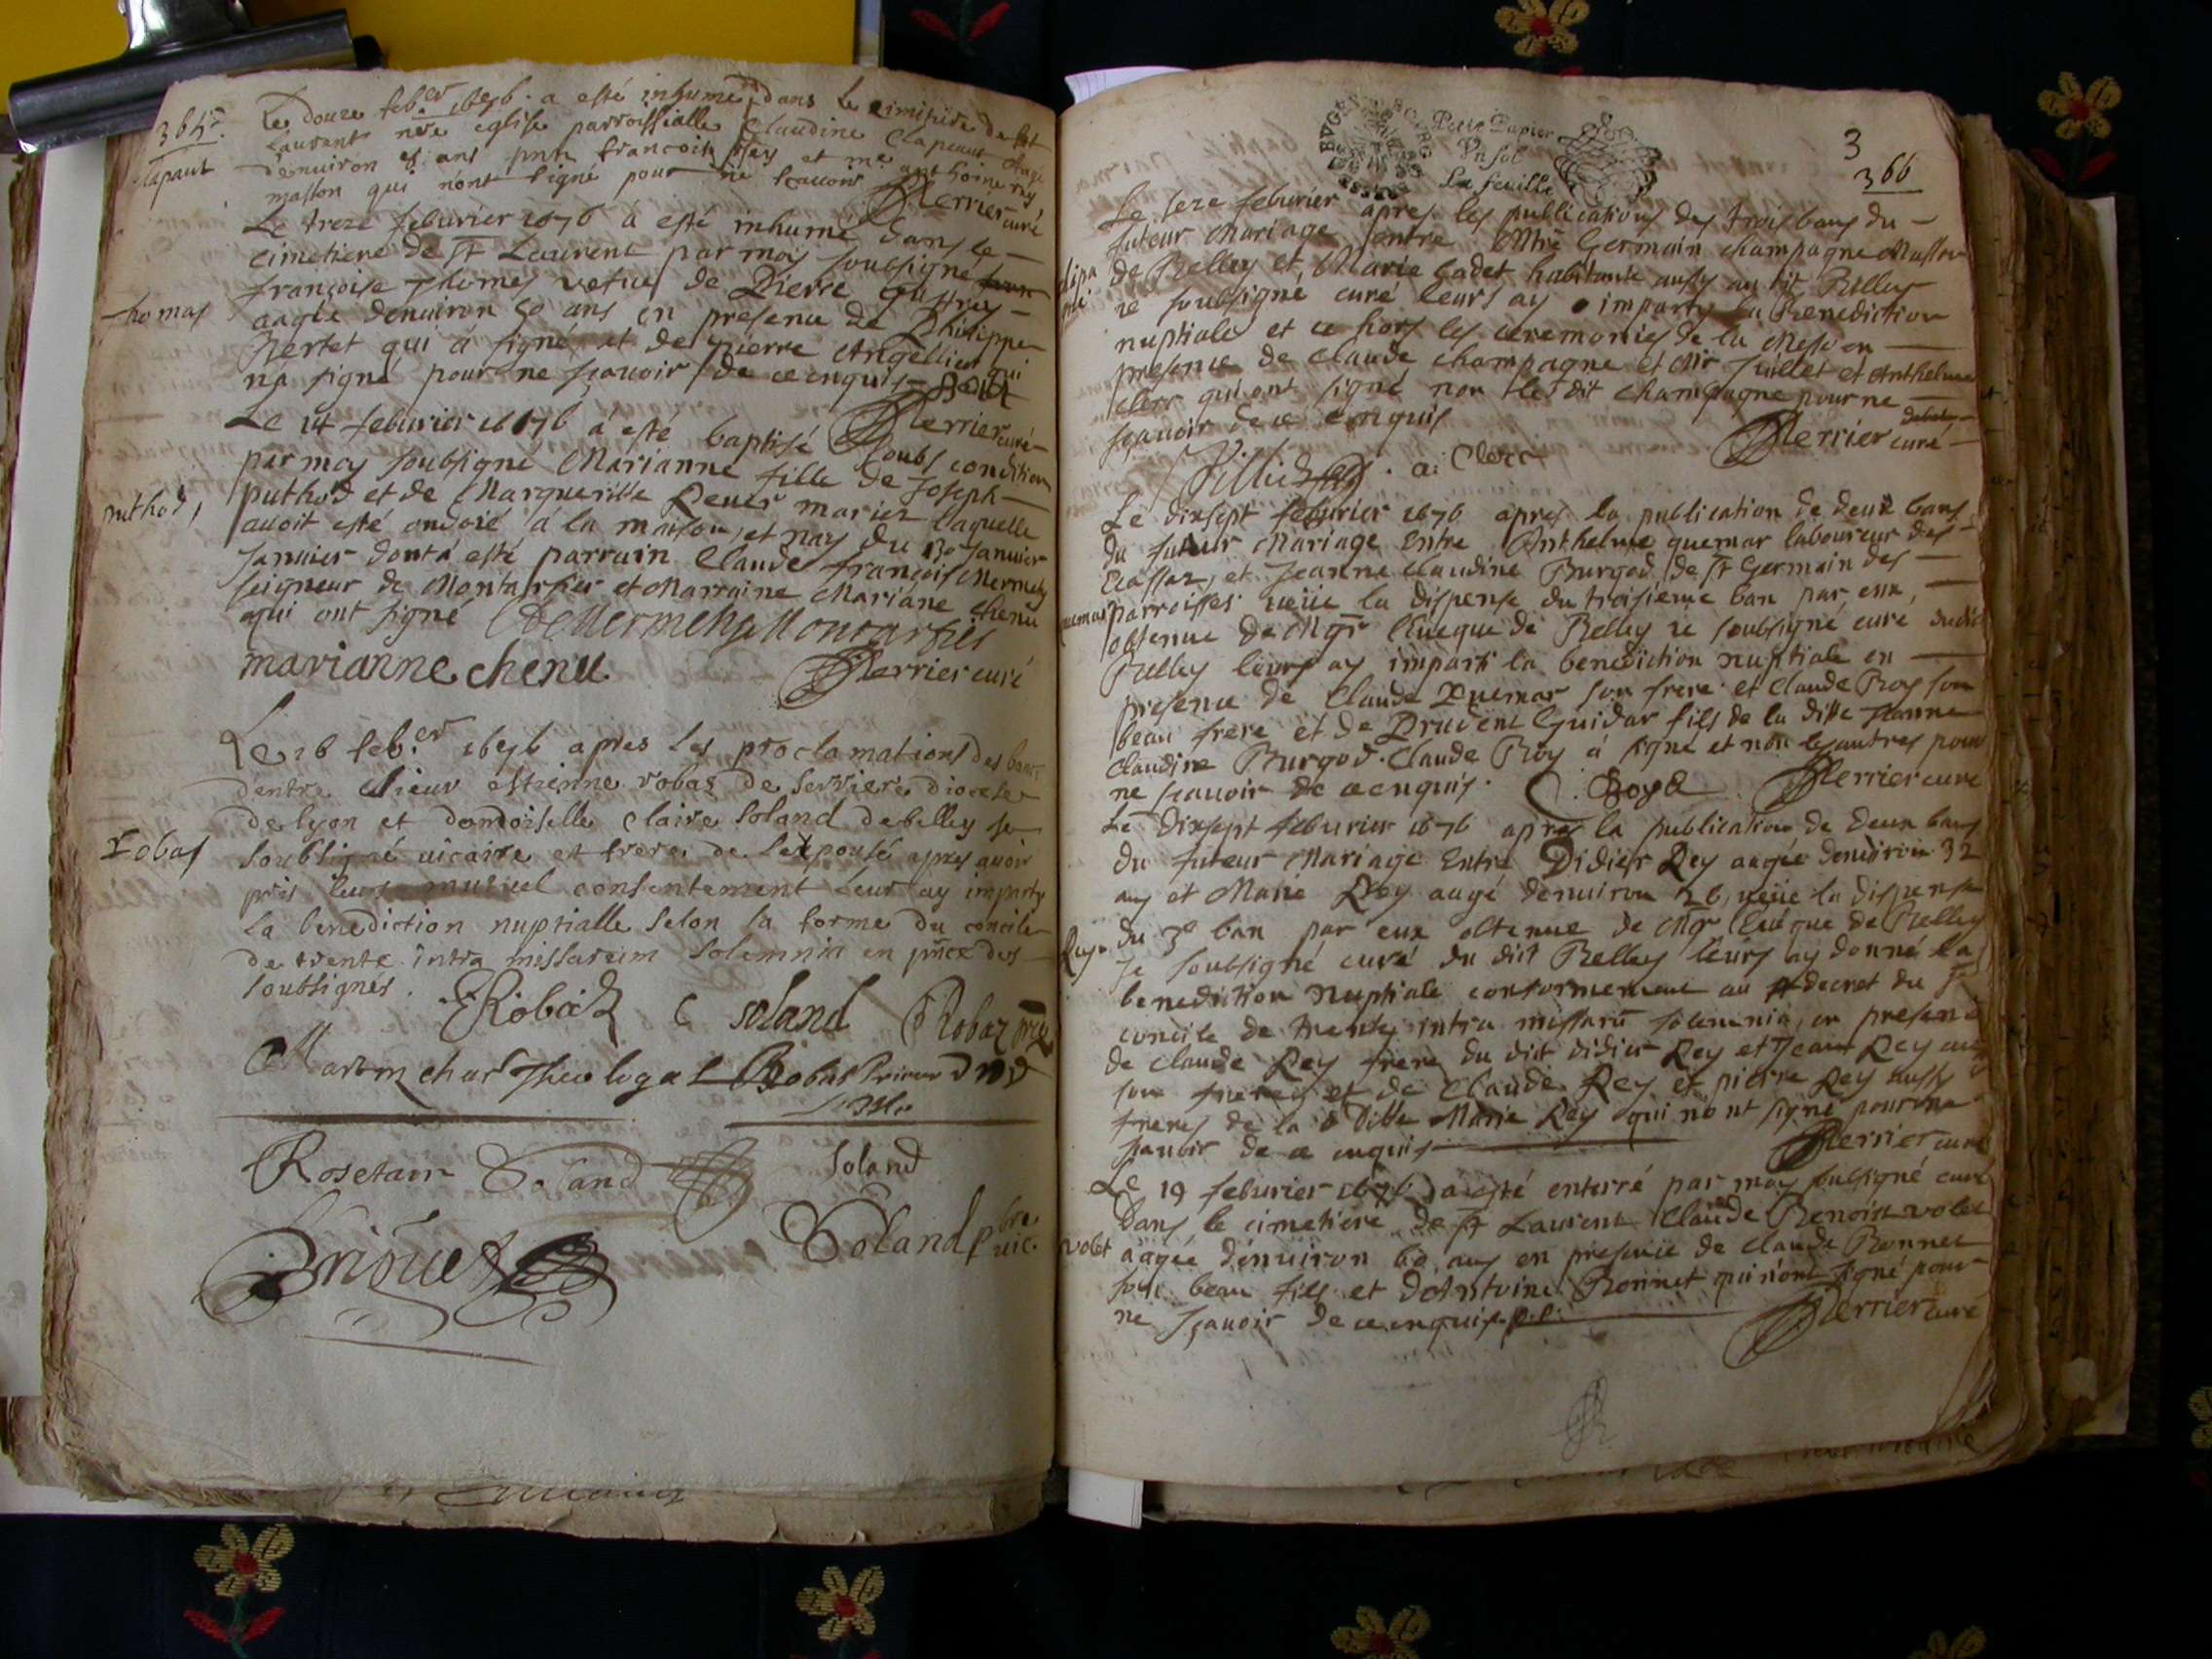 365
Le douze feb.er 1676 a esté inhumé dans le cimitire de st
Laurent nre eglise parroissialle Claudine Clapeaut Aagé
d'enuiron ans pntz francois Rey et me anthoine rey
masson qui n'ont signé pour ne scauoir
Perrier curé
Le treze feburier 1676 à esté inhumé dans le
cimetiere de st Laurent par moy soubsigné
thomas
françoise Thomas vefue de Pierre
aagée denuiron 50 ans en presence de Philippe
Bertet qui à signé et de pierre Angellier qui
na signé pour ne sçauoir de ce enquis
Perrier curé
Le 14 feburier 1676 à esté baptisé soubs condition
par moy soubsigné Marianne fille de Joseph
puthod
puthod et de Marguerille Reuer mariez laquelle
auoit esté ondoié à la maison, et nay du 30 Januier
Januier dont à esté parrain Claude françois Mermety
seigneur de Montarfier et Marraine Mariane Chenu
qui ont signé DeMermety Montarfier
marianne chenu
Perrier curé
Le 16 feb.er 1676 apres les proclamations des bans
d'entre sieur estienne robas de serriere diocese
de lyon et damoiselle claire soland de belley je
robas
soubsigné uicaire et frere de lexpousé apres auoir
pris leur mutuel consentement leur ay imparty
la benediction nuptialle selon la forme du concile
de trente intra missarum solemnia en pnce des
soubsignés.
ERobas C soland Robaz
Martin char Theologal Robas Prieur
Rosetain Soland soland
Brioues Soland pbre uic.
Petit Papier
Vn sol
La feuille
3
366
Le seze feburier apres les publications des trois bans du
futeur Mariage entre Mtre Germain champagne Masson
de Belley et Marie Cadet habitante aussy au dit Belley
Je soubsigné curé leurs ay imparty la Benediction
nuptiale et ce hors les ceremonies de la Messe en
presence de claude champagne et Mr Juillet et Anthelme
clerc qui ont signé non ledit champagne pour ne
sçauoir de ce enquis
Perrier curé
a. Clerc
Le dixsept feburier 1676 apres la publication de deux bans
du futeur Mariage Entre Anthelme quemar laboureur des
Ecassaz, et Jeanne claudine Burgod de st Germain des
quemar
parroisses ueüe la dispense du troisieme ban par eux,
obtenue de Mgr l'Eueque de Belley Je soubsigné curé dudit
Belley leurs ay imparti la benediction nuptiale en
presence de Claude Quemar son frere et Claude Roy son
beau frere et de Prudent Guidar fils de la ditte Jeanne
Claudine Burgod. Claude Roy à signé et non les autres pour
ne scauoir de ce enquis.
C. Roy Perrier curé
Le dixsept feburier 1676 apres la publication de deux bans
du futeur Mariage Entre Didier Rey aagée denuiron 32
ans et Marie Rey aagé denuiron 26, ueüe la dispense
Rey
du 3e ban par eux obtenue de Mgr l'Euêque de Belley
Je soubsigné curé du dit Belley leurs ay donné la
benediction nuptiale conformement au decret du st
concile de trente intra missarū solemnia, en presence
de claude Rey frere du dit didier Rey et Jean Rey aussy
son frere, et de Claude Rey et pierre Rey aussy
freres de la Ditte Marie Rey qui nont signé pour ne
scauoir de ce enquis
Perrier curé
Le 19 feburier 1676 a esté enterré par moy subsigné curé
Dans le cimetiere de st Laurent Claude Benoist volet
volet
aagée denuiron 60 ans en presence de claude Bonnet
son beau fils et d'Antoine Bonnet qui n'ont signé pour
ne sçauoir de ce enquis
Perrier curé